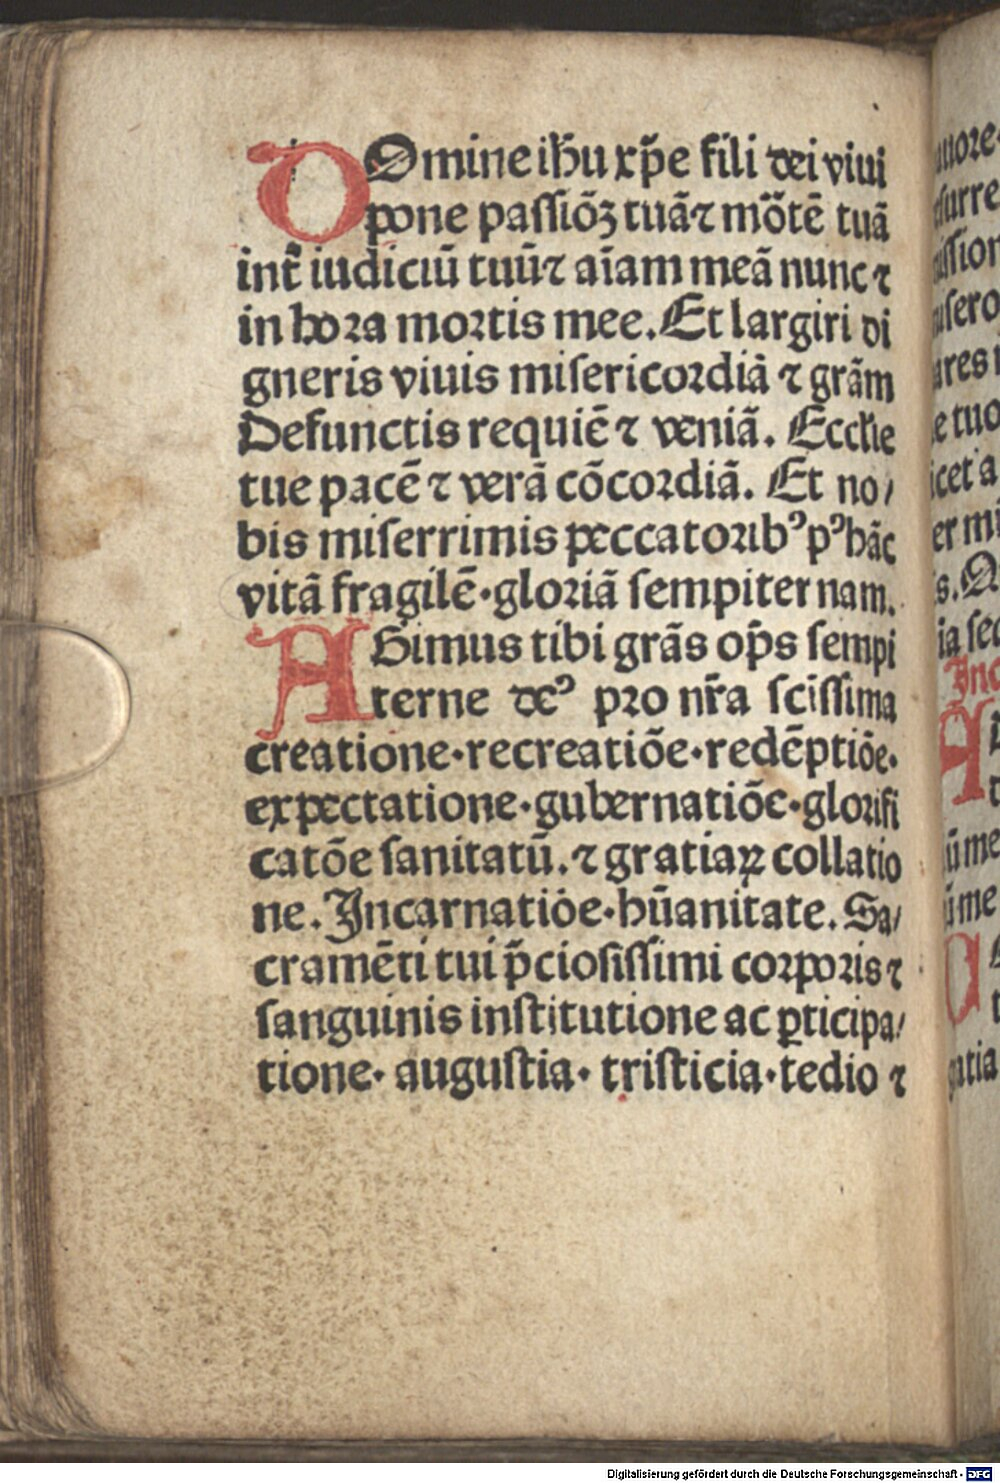 DOmine ihu xp̃e fili dei viui
pone passiõꝫ tuã ⁊ mõtẽ tuã
int̃ iudiciũ tuũ ⁊ aĩam meã nunc ⁊
in hora mortis mee. Et largiri di
gneris viuis misericordiã ⁊ grãm
Defunctis requiẽ ⁊ veniã. Ecclie
tue pacẽ ⁊ verã cõcordiã. Et no/
bis miserrimis peccatoribꝰ pꝰ hãc
vitã fragilẽ · gloriã sempiternam.
AGimus tibi grãs op̃s sempi
terne deꝰ pro nr̃a scissima
creatione · recreatiõe · redẽptiõe ·
expectatione · gubernatiõe · glorifi
catõe sanitatũ. ⁊ gratiaꝝ collatio
ne. Incarnatiõe · hũanitate. Sa/
cramẽti tui p̃ciosissimi corporis ⁊
sanguinis institutione ac ꝑticipa/
tione · augustia · tristicia · tedio ⁊
Digitalisierung gefördert durch die Deutsche Forschungsgemeinschaft - DFG